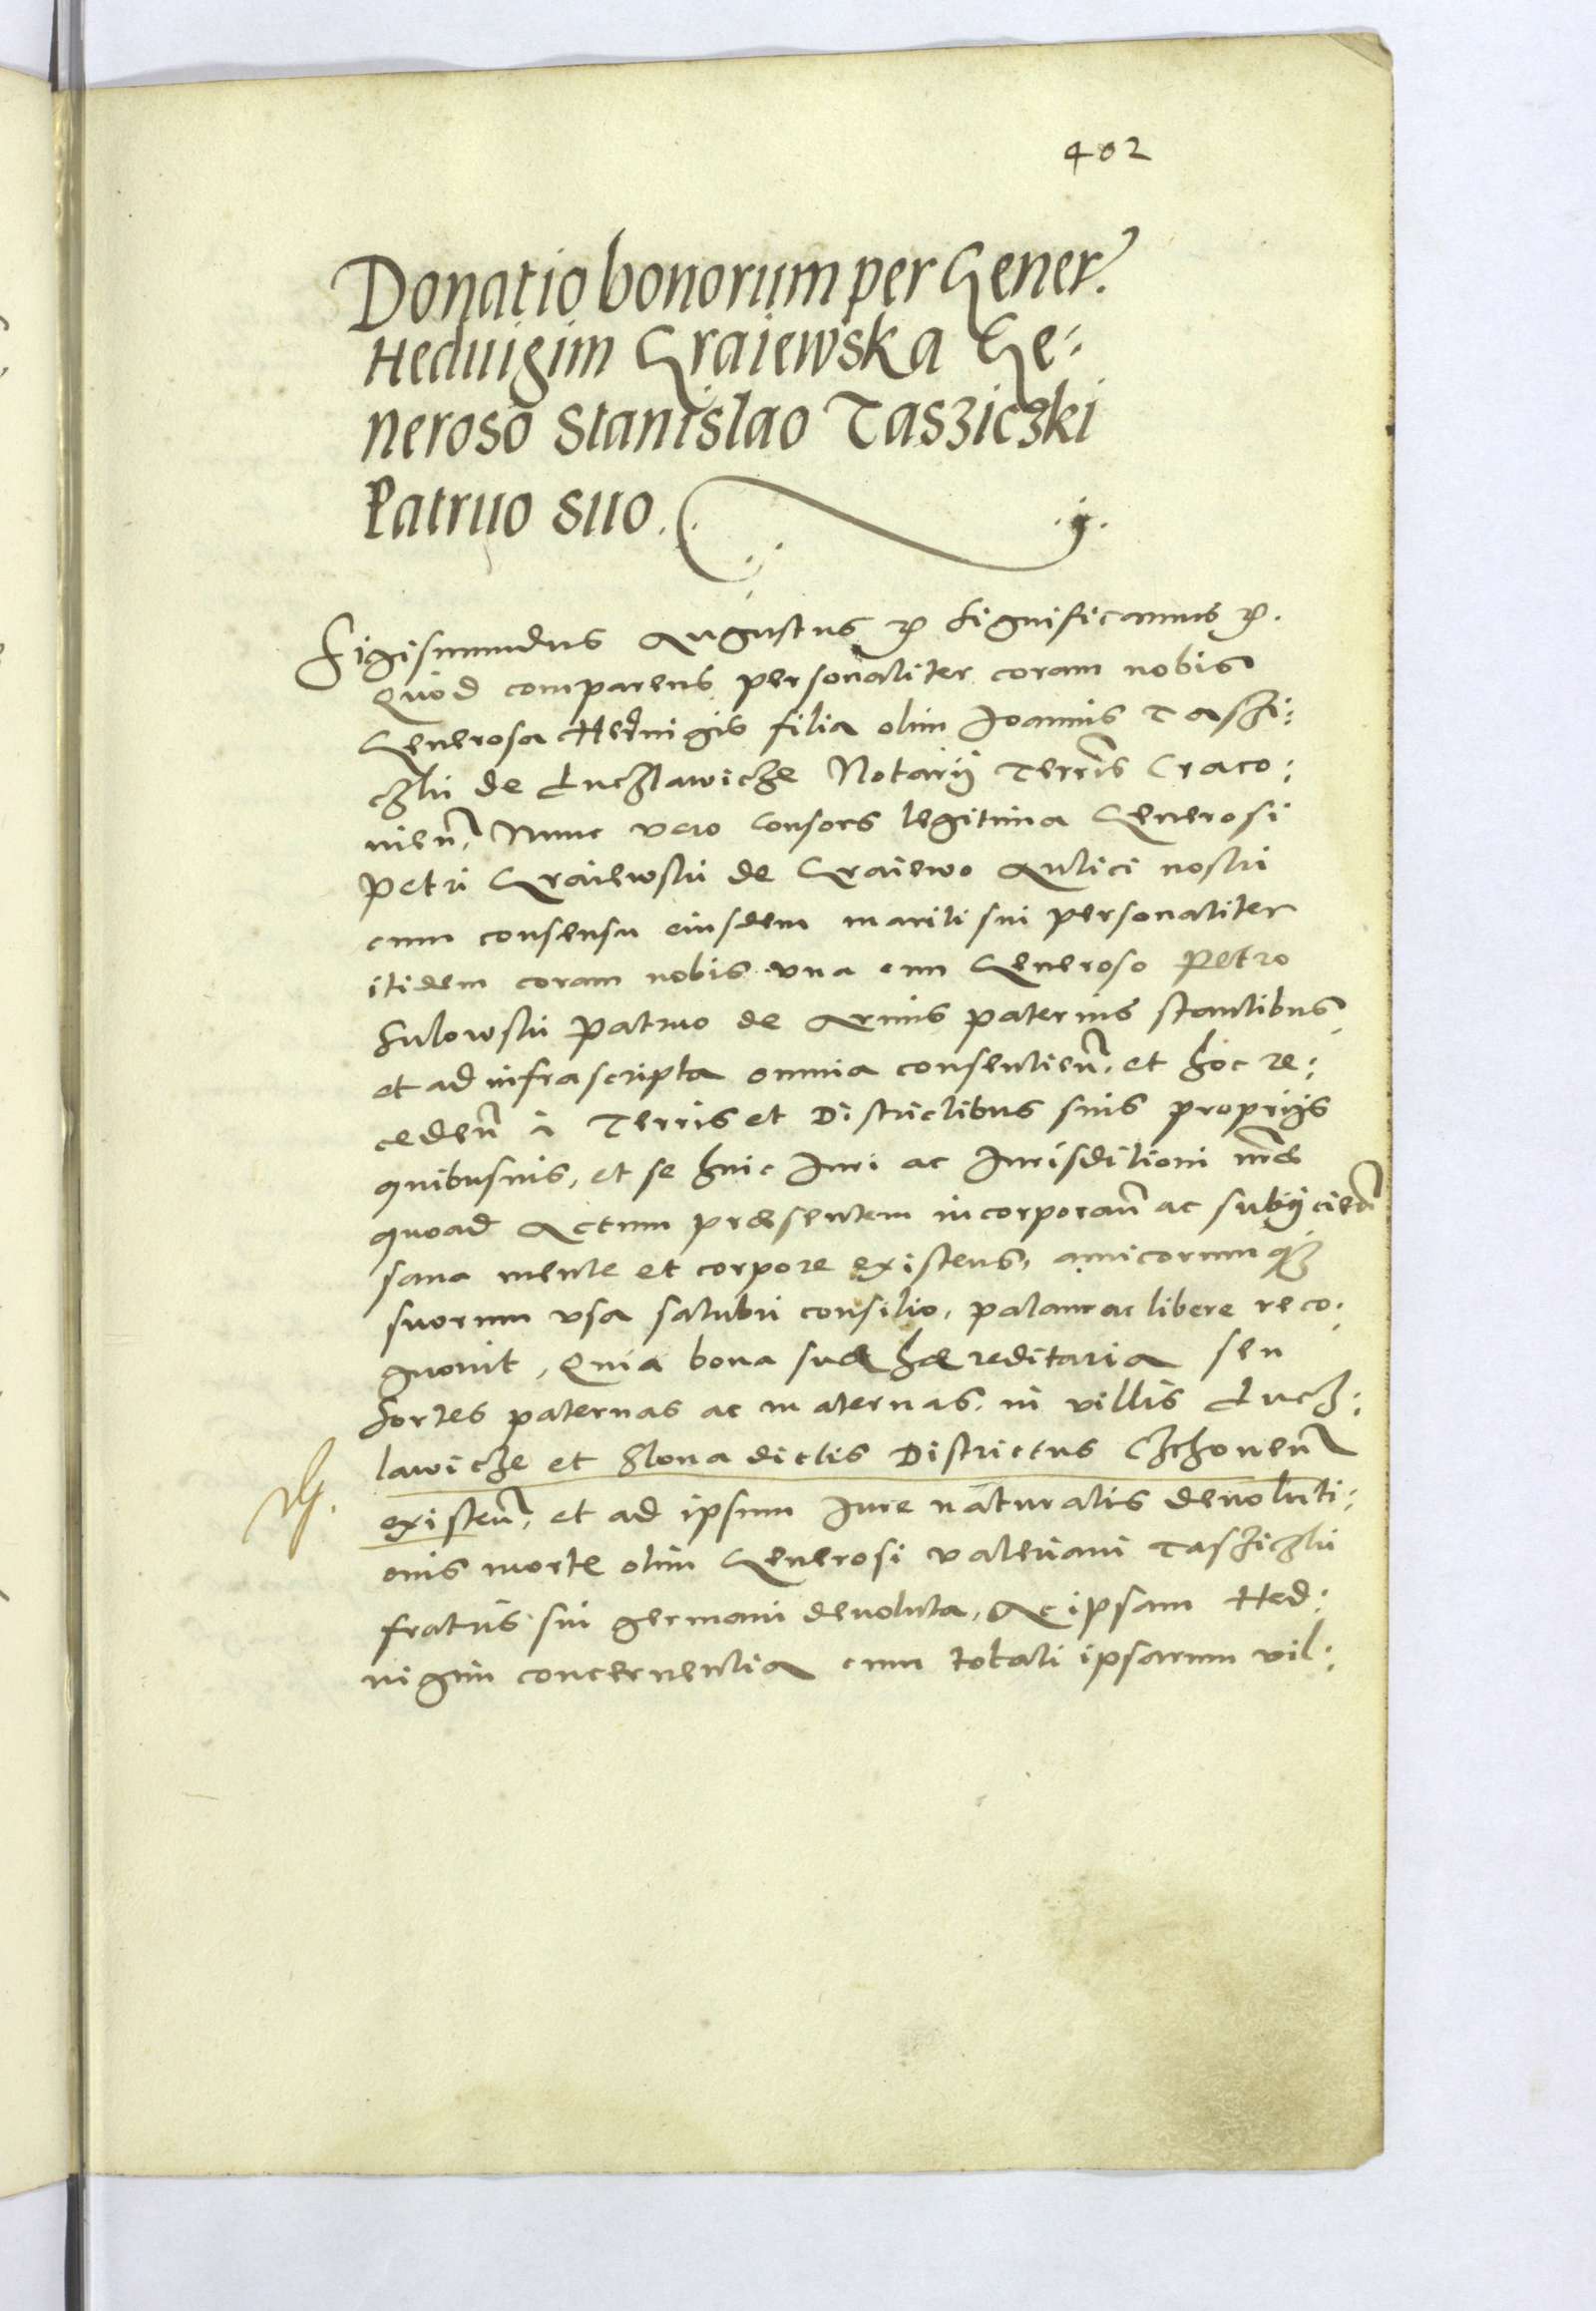 402
Donatio bonorum per Gener.
Heduigim Graiewska Ge-
neroso Stanislao Tasziczki
Patruo suo.
Sigismundus Augustus etc Significamus etc.
Quod comparens personaliter coram nobis
Generosa Heduigis filia olim Joannis Taszi-
czki de Luczlawicze Notarij Terris Craco-
nien. Nunc vero Consors legitima Generosi
Petri Graiewski de Graiewo Aulici nostri
cum consensu eiusdem mariti sui personaliter
itidem coram nobis vna cum Generoso Petro
Sulowski Patruo de Armis paternis stantibus,
et ad infrascripta omnia consentien. et hoc re-
ceden à Terris et Districtibus suis proprijs
quibusuis, et se huic Iuri ac Iurisditioni nrae
quoad Actum praesentem incorporan ac subijcien
sana mente et corpore existens, amicorumq3
suorum vsa salubri consilio, palam ac libere reco-
gnouit, Quia bona sua haereditaria seu
Sortes paternas ac maternas, in villis Lucz-
lawicze et Slona dictis Districtus Czchouen
existen, et ad ipsum Iure naturalis deuoluti-
onis morte olim Generosi Valeriani Tasziczki
fratris sui germani deuoluta, Ac ipsam Hed-
uigim concernentia cum totali ipsarum vil-